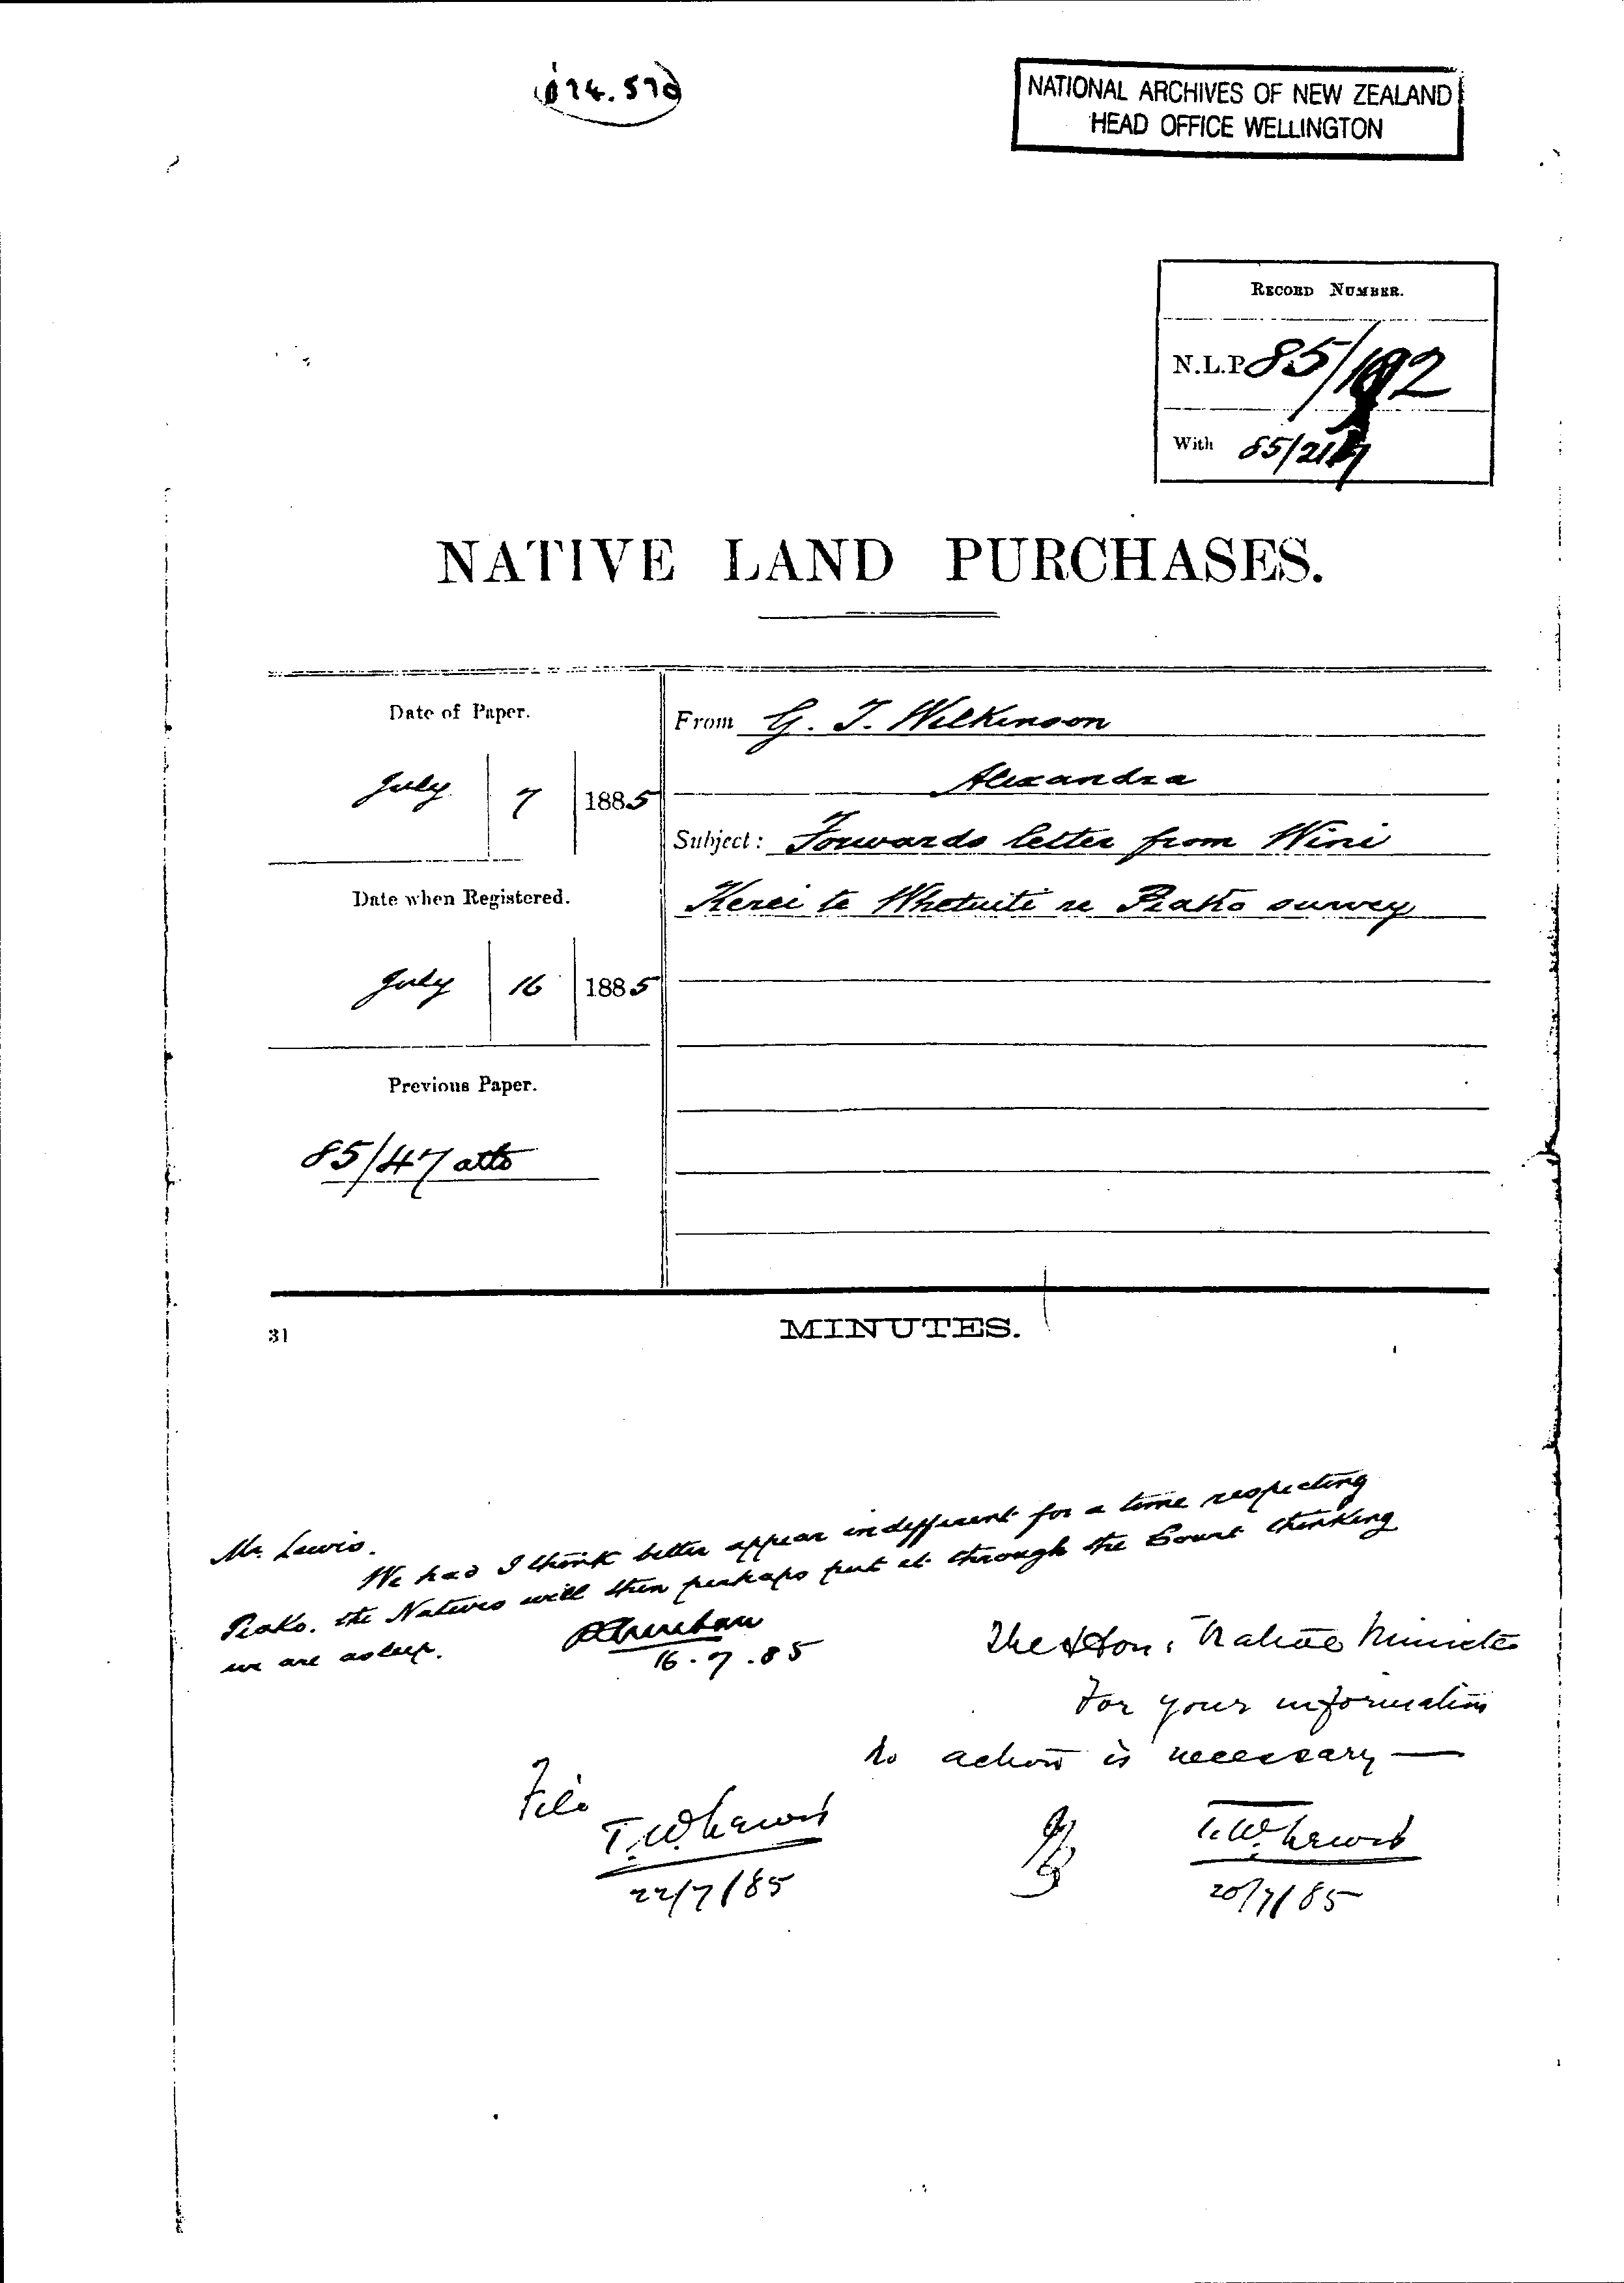 NATIONAL ARCHIVES OF NEW ZEALAND
HEAD OFFICE WELLINGTON
RECORD NUMBER.
N.L.P 85/192
With 85/21
NATIVE LAND PURCHASES.
Date of Paper.
July 7 1885
From G. T. Wilkinson
Alexandra
Subject: Forwards letter from Wini
Kerei te Whetuiti re Piako survey
Date when Registered.
July 16 1885
Previous Paper.
85/47 atts
31
MINUTES.
Mr. Lewis.
We had I think better appear indifferent for a time respecting
Piako. the Natives will then perhaps put it through the Court thinking
we are asleep.
16.7.85
The Hon. Native Minister
For your information
no action is necessary —
T.W. Lewis
20/7/85
File
T.W. Lewis
22/7/85